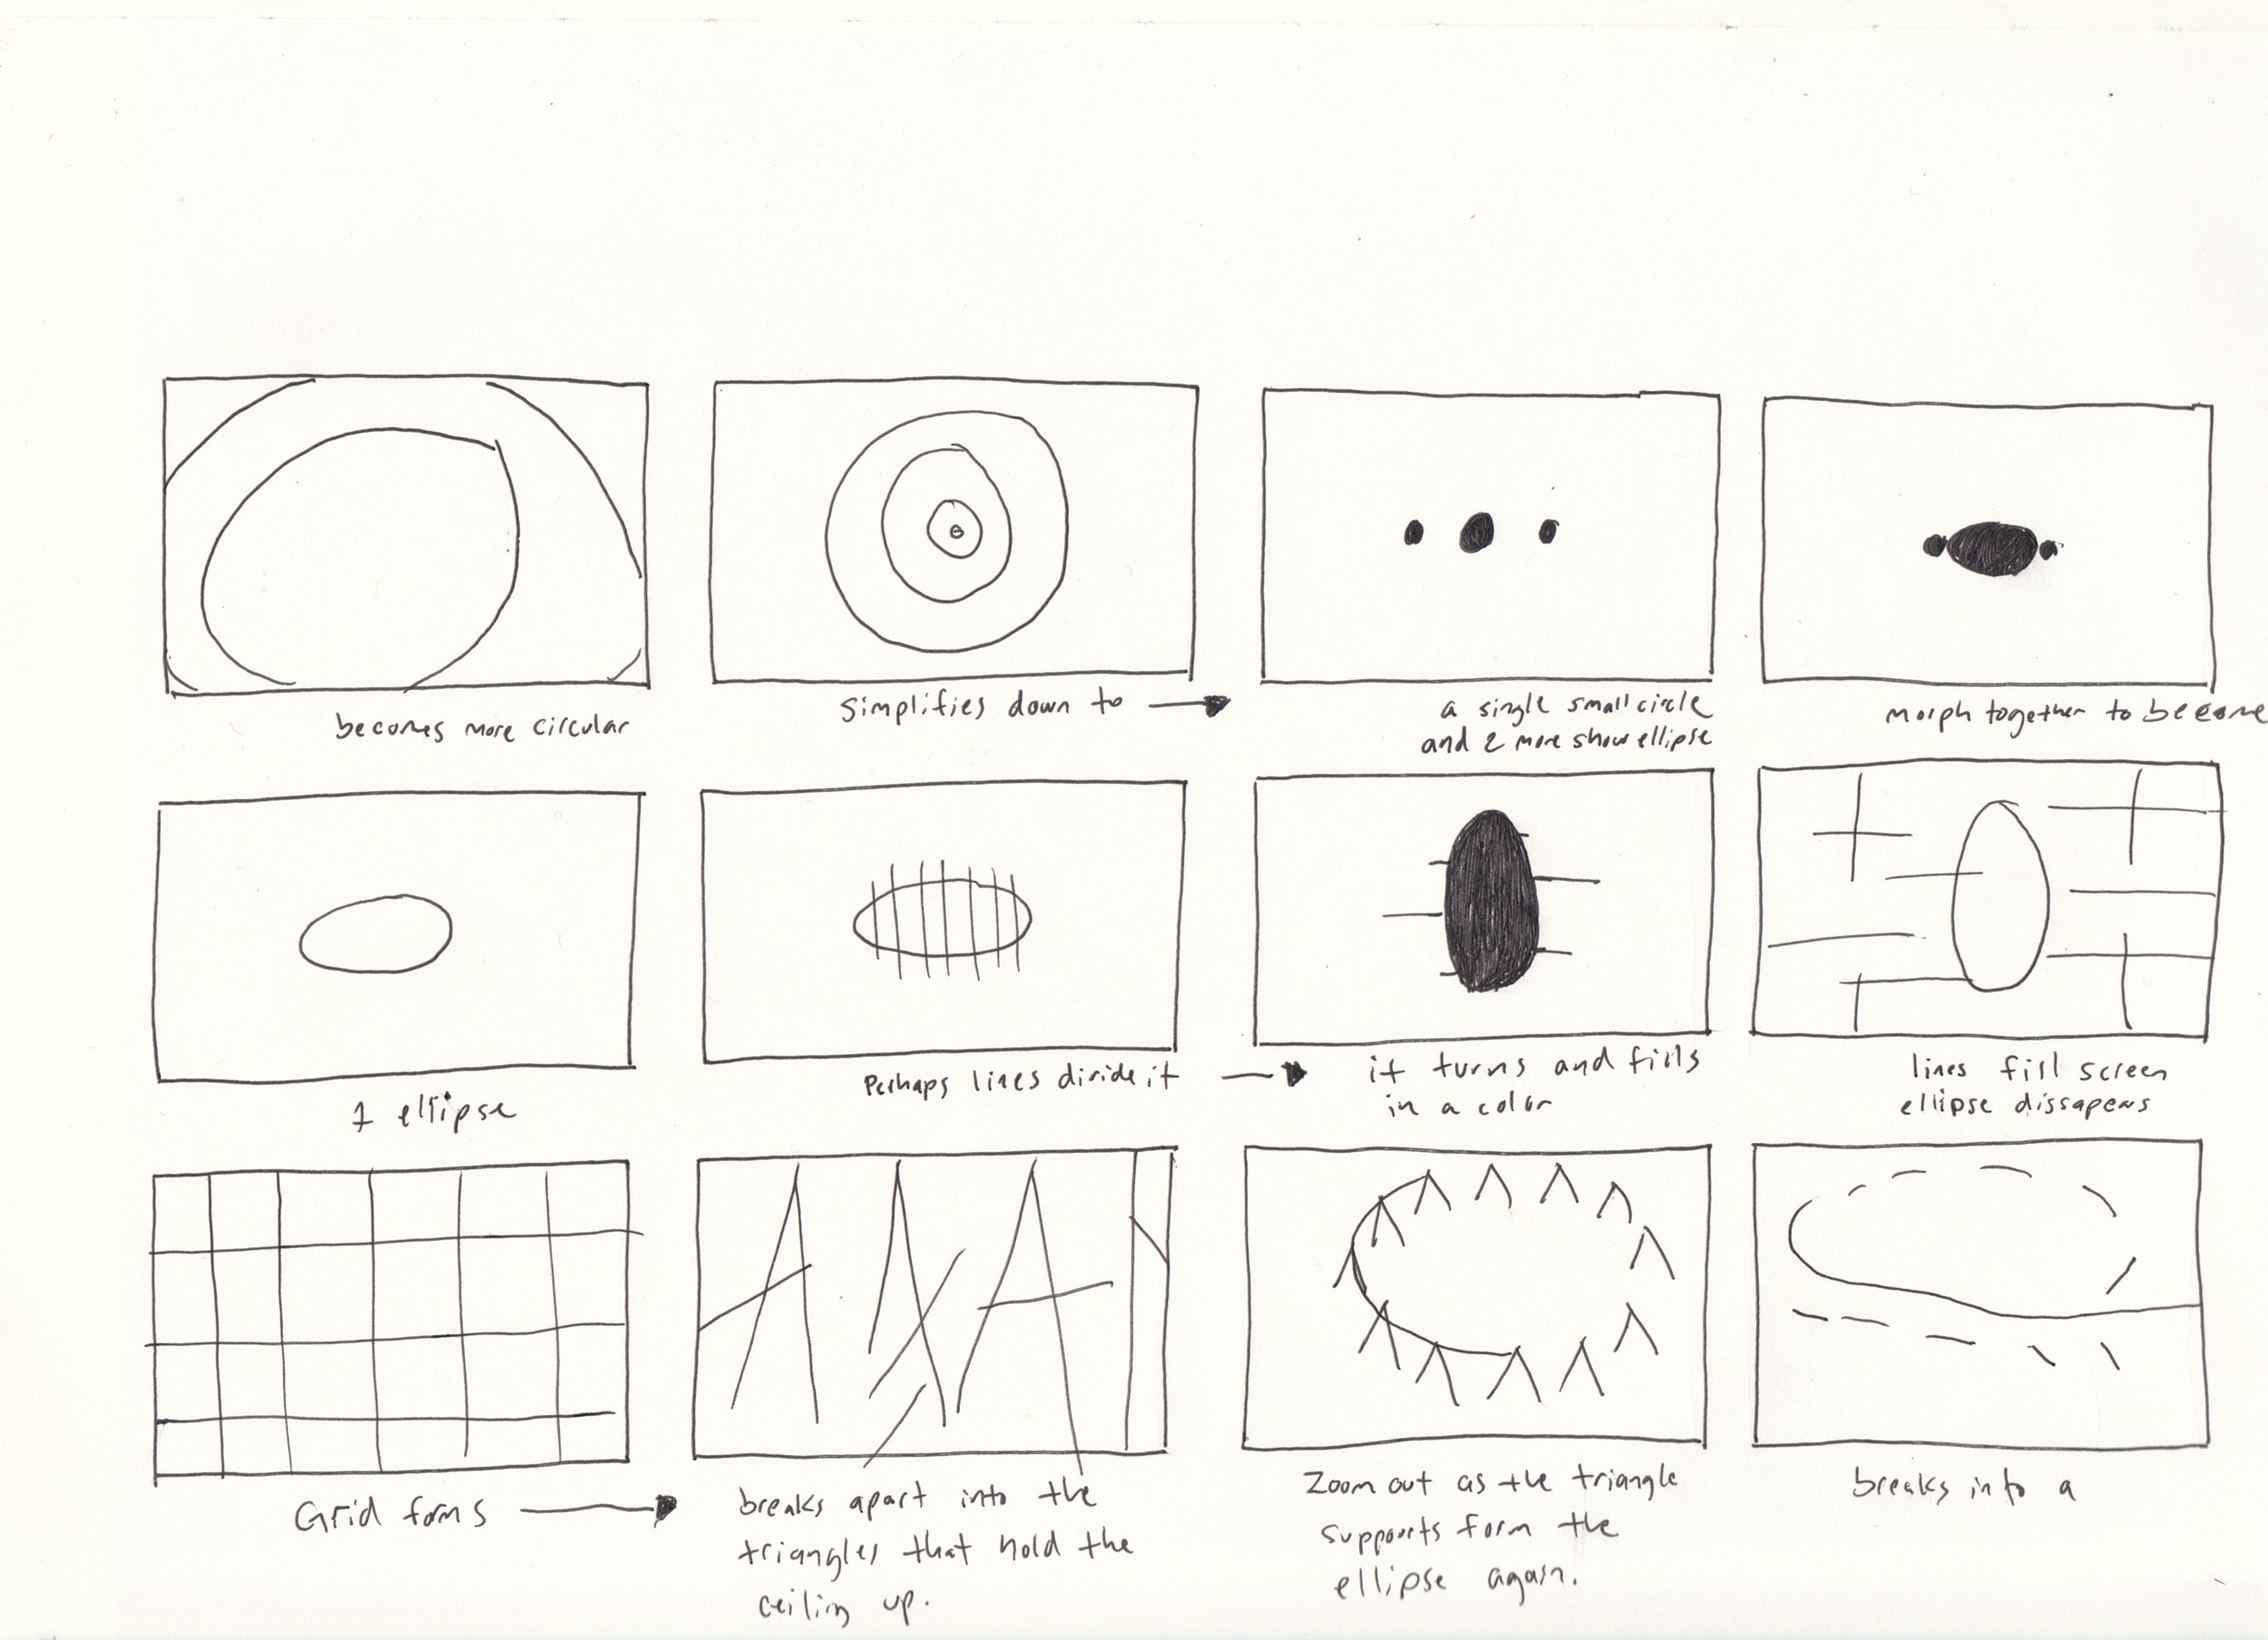 becomes more circular
simplifies down to
a single small circle
and 2 more show ellipse
morph together to become
1 ellipse
Perhaps lines divide it
it turns and fills
in a color
lines fill screen
ellipse dissapears
Grid forms
breaks apart into the
triangles that hold the
ceiling up.
Zoom out as the triangle
supports form the
ellipse again.
breaks into a